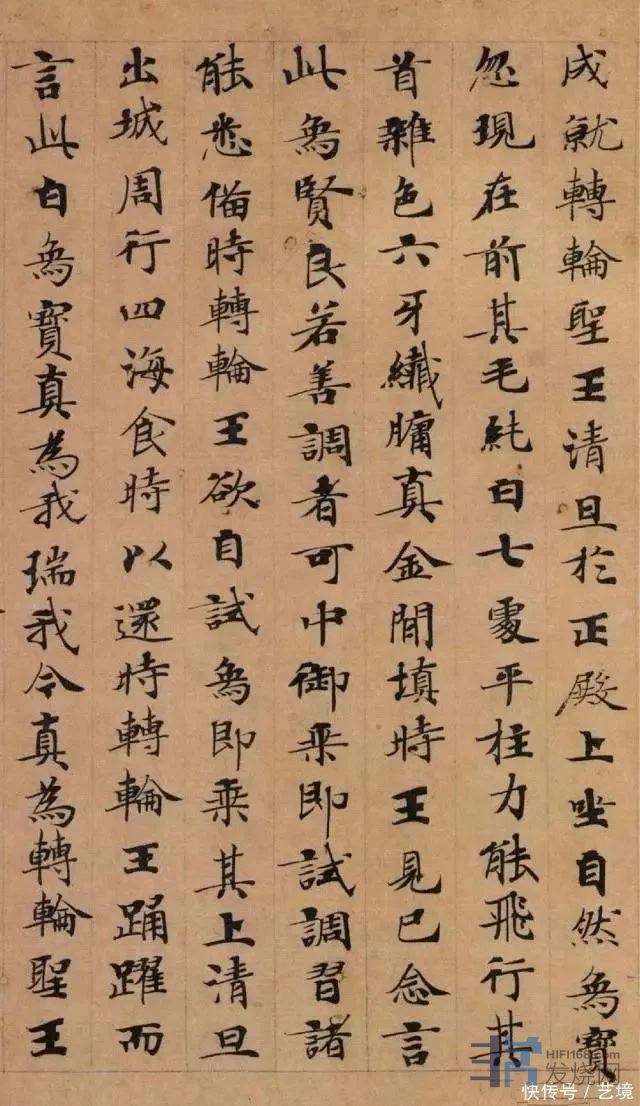 成就轉輪聖王清旦於正殿上坐自然象寶
忽現在前其毛純白七處平柱力能飛行其
首雜色六牙纖𦟛真金間填時王見已念言
此象賢良若善調者可中御乘即試調習諸
能悉備時轉輪王欲自試象即乘其上清旦
出城周行四海食時以還時轉輪王踊躍而
言此白象寶真為我瑞我今真為轉輪聖王
HIFI168.com
发烧网
快传号/艺境